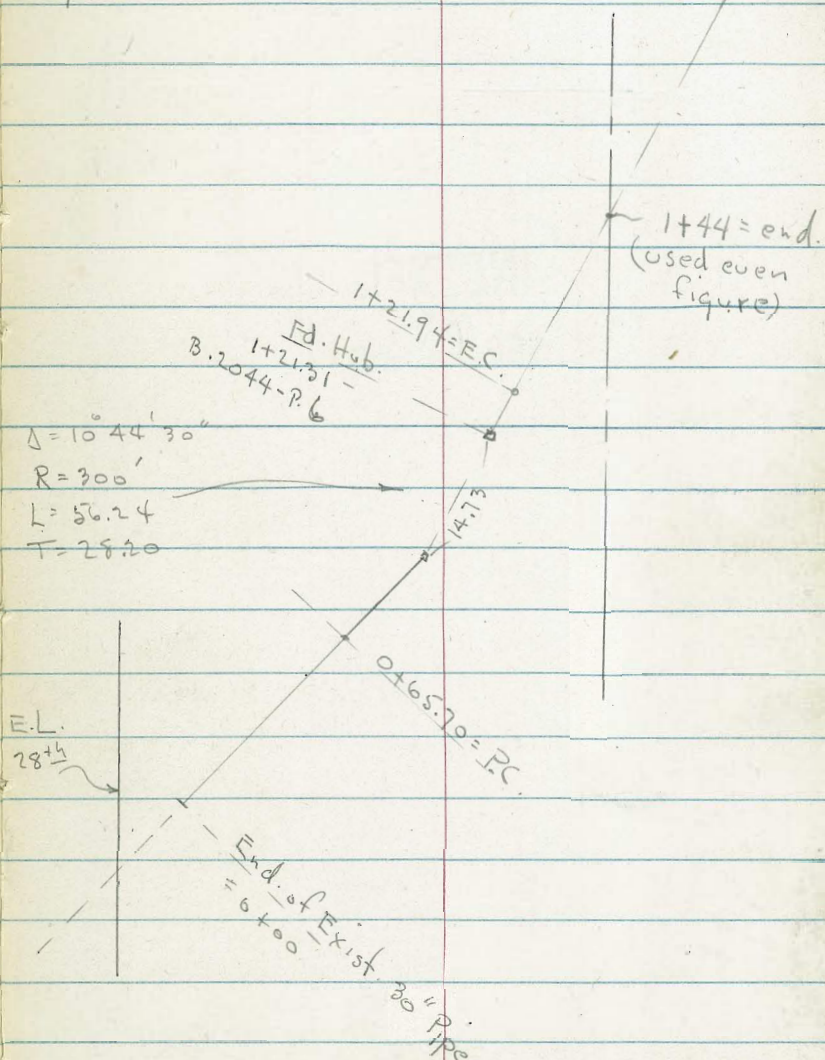 1+44 = end.
(used even
figure)
1+21.94 = E.C.
Fd. Hub.
1+21.31 -
B.2044-P.6
Δ = 10° 44' 30"
R = 300'
L = 56.24
T = 28.20
14.73
0+65.70 = P.C.
E.L.
28th
End. of Exist. 30" Pipe
= 0+00